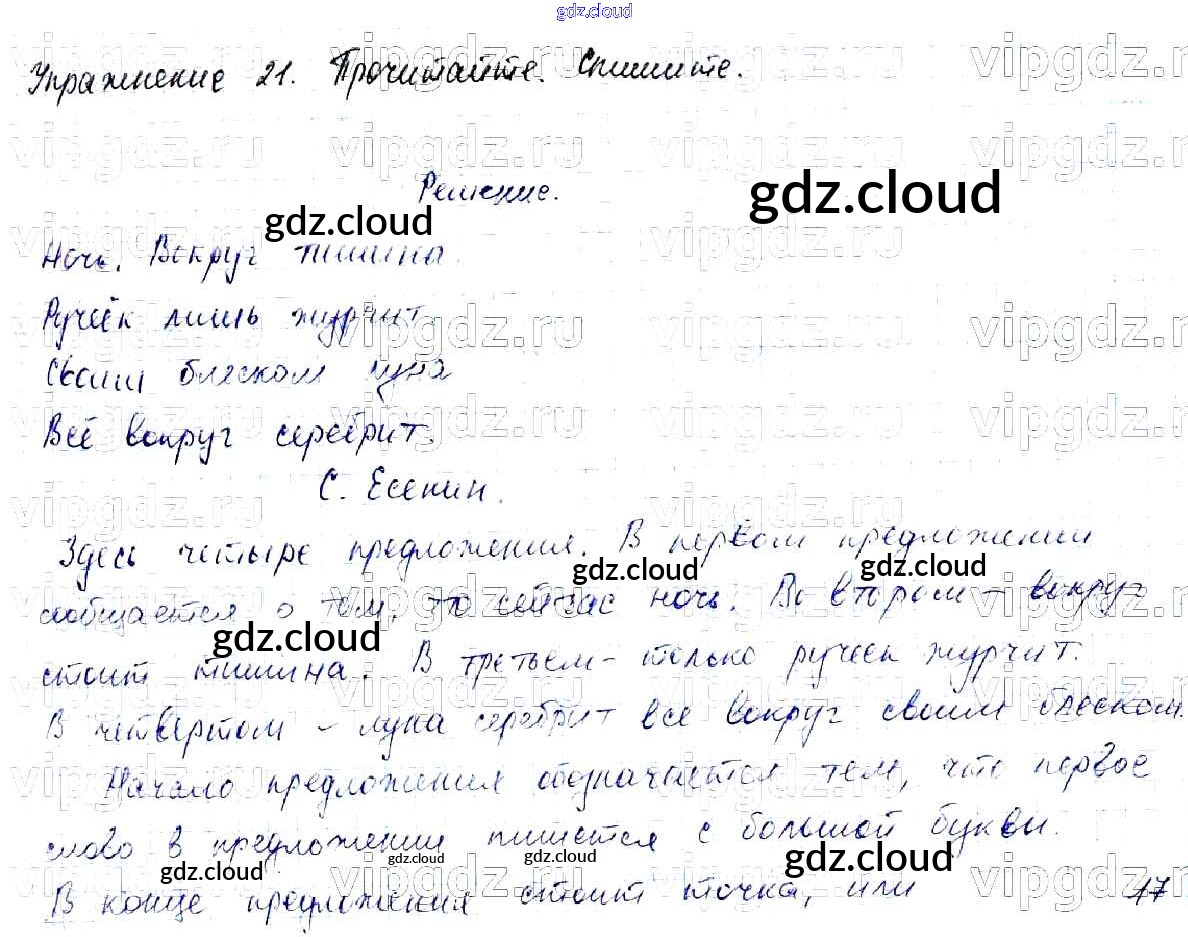 gdz.cloud
Упражнение 21. Прочитайте. Спишите.
Решение.
gdz.cloud
gdz.cloud
Ночь. Вокруг тишина.
Ручеёк лишь журчит
Своим блеском луна
Всё вокруг серебрит.
С. Есенин.
Здесь четыре предложения. В первом предложении
gdz.cloud gdz.cloud
сообщается о том, что сейчас ночь. Во втором – вокруг
gdz.cloud
стоит тишина. В третьем – только ручеек журчит.
В четвертом – луна серебрит все вокруг своим блеском.
Начало предложения обозначается тем, что первое
слово в предложении пишется с большой буквы.
gdz.cloud gdz.cloud gdz.cloud gdz.cloud
В конце предложения стоит точка, или
17
vipgdz.ru vipgdz.ru vipgdz.ru vipgdz.ru